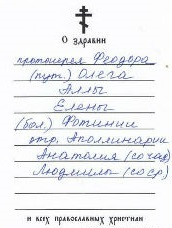 О здравии
протоиерея Феодора
(пут.) Олега
Аллы
Елены
(бол.) Фотинии
отр. Аполлинарии
Анатолия (сочад)
Людмилы (соср.)
и всех православных христиан